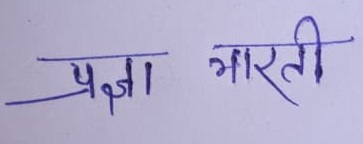 प्रज्ञा भारती